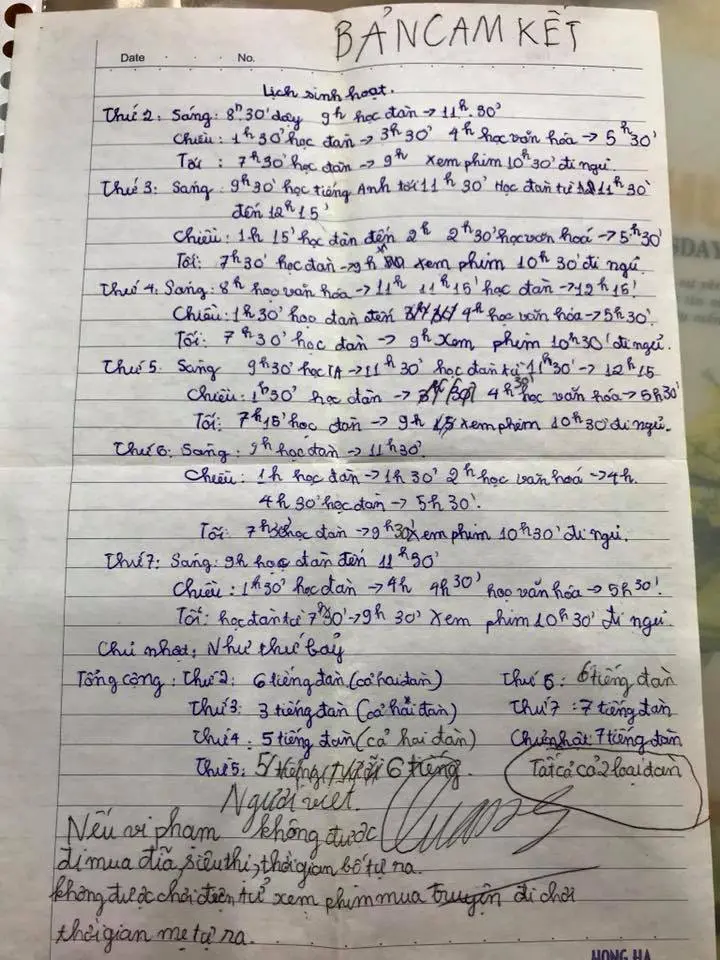 BẢN CAM KẾT
Date . . . No.
Lịch sinh hoạt.
Thứ 2: Sáng: 8h30' dậy 9h học đàn → 11h.30'
Chiều: 1h30' học đàn → 3h30' 4h học văn hóa → 5h30'
Tối : 7h30' học đàn → 9h xem phim 10h30' đi ngủ.
Thứ 3: Sáng: 9h30' học tiếng Anh tới 11h30' Học đàn từ 11h30'
đến 12h15'
Chiều: 1h15' học đàn đến 2h 2h30' học văn hoá → 5h30'
Tối: 7h30' học đàn → 9h xem phim 10h30' đi ngủ.
Thứ 4: Sáng: 8h học văn hóa → 11h 11h15' học đàn → 12h15'
Chiều: 1h30' học đàn đến 4h học văn hóa → 5h30'.
Tối: 7h30' học đàn → 9h xem phim 10h30' đi ngủ.
Thứ 5: Sáng 9h30' học TA → 11h30' học đàn từ 11h30' → 12h15
Chiều: 1h30' học đàn → 4h30' học văn hóa → 5h30'
Tối: 7h15' học đàn → 9h xem phim 10h30' đi ngủ.
Thứ 6: Sáng: 9h học đàn → 11h30'.
Chiều: 1h học đàn → 1h30' 2h học văn hoá → 4h.
4h30' học đàn → 5h30'.
Tối: 7h30' học đàn → 9h30' xem phim 10h30' đi ngủ.
Thứ 7: Sáng: 9h học đàn đến 11h30'
Chiều: 1h30' học đàn → 4h 4h30' học văn hóa → 5h30'.
Tối: học đàn từ 7h30' → 9h30' xem phim 10h30' đi ngủ.
Chủ nhật: Như thứ bảy
Tổng cộng: Thứ 2: 6 tiếng đàn (cả hai đàn) Thứ 6: 6 tiếng đàn
Thứ 3: 3 tiếng đàn (cả hai đàn) Thứ 7: 7 tiếng đàn
Thứ 4: 5 tiếng đàn (cả hai đàn) Chủ nhật: 7 tiếng đàn
Thứ 5: 6 tiếng. Tất cả cả 2 loại đàn
Người viết.
Nếu vi phạm không được
đi mua đĩa, siêu thị, thời gian bố tự ra.
không được chơi điện tử xem phim mua truyện đi chơi
thời gian mẹ tự ra.
HONG HA